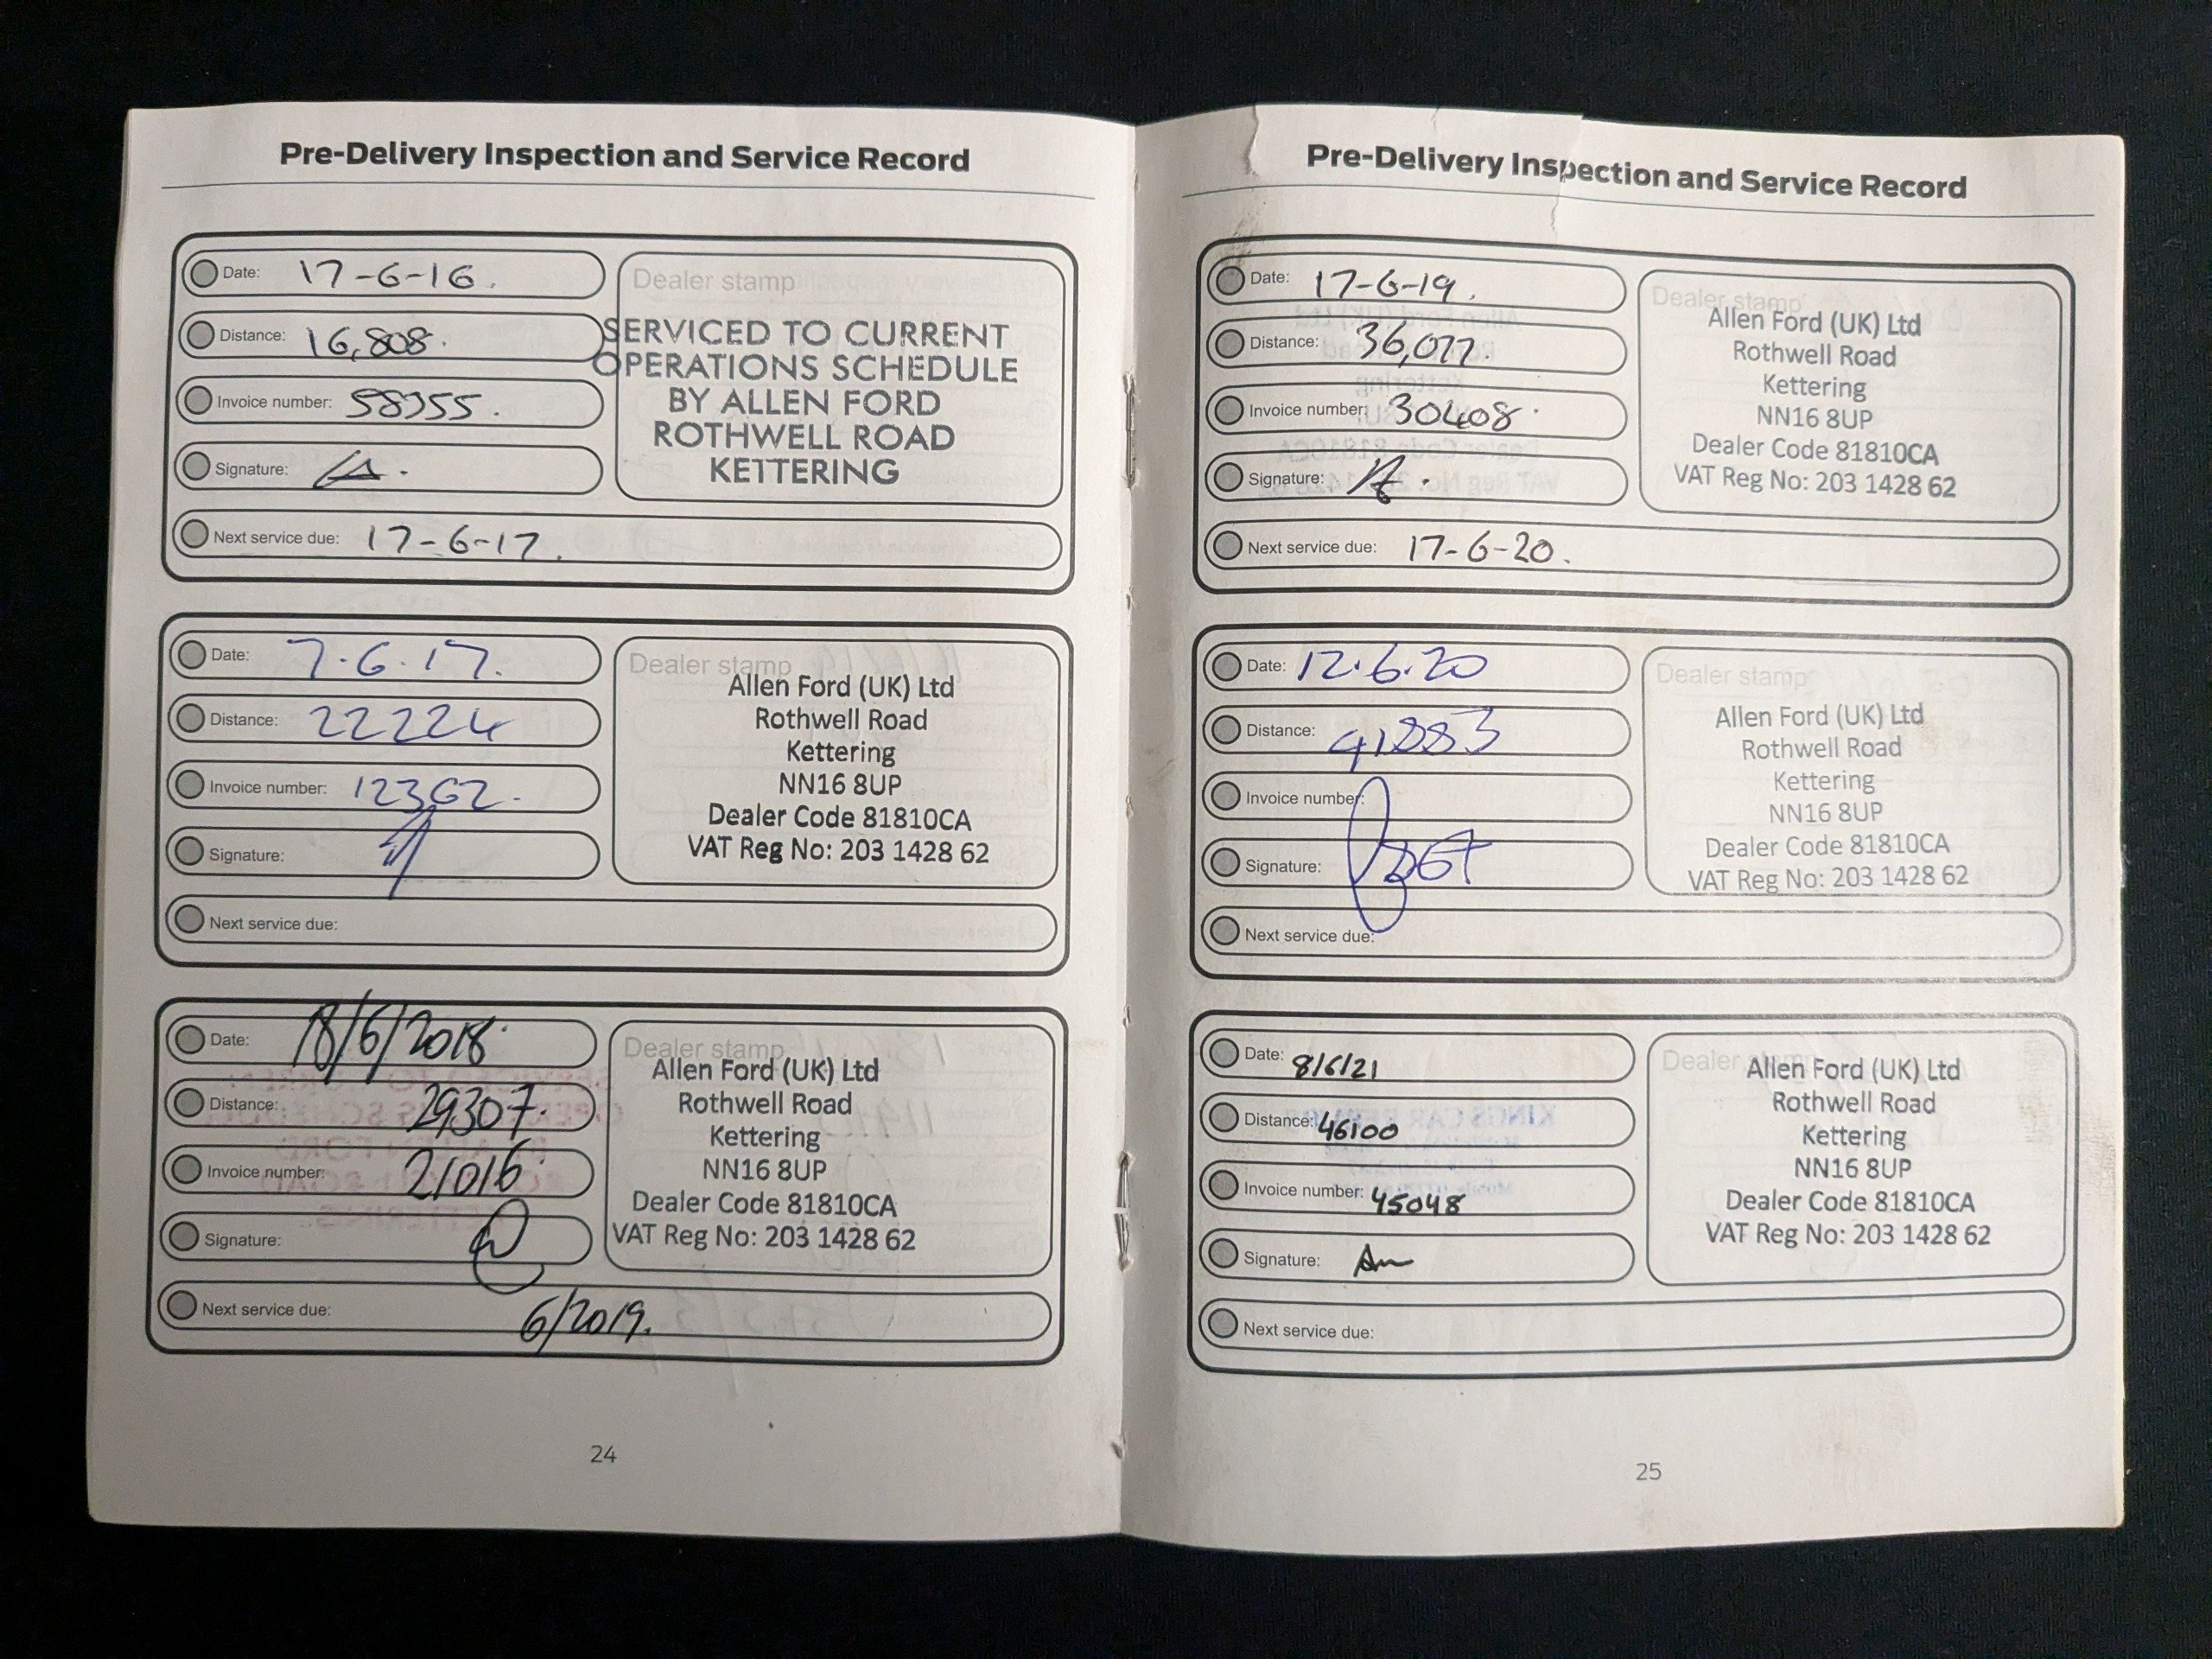 Pre-Delivery Inspection and Service Record
Date: 17-6-16.
Distance: 16,808.
Invoice number: 58355.
Signature:
Next service due: 17-6-17.
Dealer stamp
SERVICED TO CURRENT
OPERATIONS SCHEDULE
BY ALLEN FORD
ROTHWELL ROAD
KETTERING
Date: 7.6.17.
Distance: 22224
Invoice number: 12362.
Signature:
Next service due:
Dealer stamp
Allen Ford (UK) Ltd
Rothwell Road
Kettering
NN16 8UP
Dealer Code 81810CA
VAT Reg No: 203 1428 62
Date: 18/6/2018.
Distance: 29307.
Invoice number: 21016.
Signature:
Next service due: 6/2019.
Dealer stamp
Allen Ford (UK) Ltd
Rothwell Road
Kettering
NN16 8UP
Dealer Code 81810CA
VAT Reg No: 203 1428 62
24
Pre-Delivery Inspection and Service Record
Date: 17-6-19.
Distance: 36,077.
Invoice number: 30408.
Signature:
Next service due: 17-6-20.
Dealer stamp
Allen Ford (UK) Ltd
Rothwell Road
Kettering
NN16 8UP
Dealer Code 81810CA
VAT Reg No: 203 1428 62
Date: 12.6.20
Distance: 41883
Invoice number:
Signature:
Next service due:
Dealer stamp
Allen Ford (UK) Ltd
Rothwell Road
Kettering
NN16 8UP
Dealer Code 81810CA
VAT Reg No: 203 1428 62
Date: 8/6/21
Distance: 46100
Invoice number: 45048
Signature:
Next service due:
Dealer stamp
Allen Ford (UK) Ltd
Rothwell Road
Kettering
NN16 8UP
Dealer Code 81810CA
VAT Reg No: 203 1428 62
25